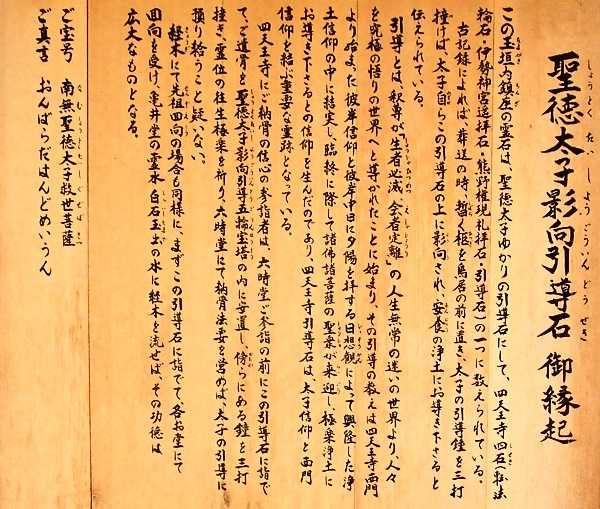 聖徳太子影向引導石 御縁起
この玉垣内鎮座の霊石は、聖徳太子ゆかりの引導石にして、四天王寺四石(転法
輪石・伊勢神宮遥拝石・熊野権現礼拝石・引導石)の一つに数えられている。
古記録によれば、葬送の時、暫く柩を鳥居の前に置き、太子の引導鐘を三打
撞けば、太子自らこの引導石の上に影向され、安養の浄土にお導き下さると
伝えられている。
引導とは、釈尊が「生者必滅、会者定離」の人生無常の迷いの世界より、人々
を究極の悟りの世界へと導かれたことに始まり、その引導の教えは四天王寺西門
より始まった彼岸信仰と彼岸中日に夕陽を拝する日想観によって興隆した浄
土信仰の中に結実し、臨終に際して諸佛諸菩薩の聖衆が来迎し、極楽浄土に
お導き下さるとの信仰を生んだのであり、四天王寺引導石は、太子信仰と西門
信仰を結ぶ重要な霊跡となっている。
四天王寺にご納骨の信心の参詣者は、六時堂ご参詣の前にこの引導石に詣で
て、ご遺骨を聖徳太子影向引導五輪宝塔の内に安置し、傍らにある鐘を三打
撞き、霊位の往生極楽を祈り、六時堂にて納骨法要を営めば、太子の引導に
預り給うこと疑いない。
経木にて先祖回向の場合も同様に、まずこの引導石に詣でて、各お堂にて
回向を受け、亀井堂の霊水・白石玉出の水に経木を流せば、その功徳は
広大なものとなる。
ご宝号 南無聖徳太子救世菩薩
ご真言 おんばらだはんどめいうん